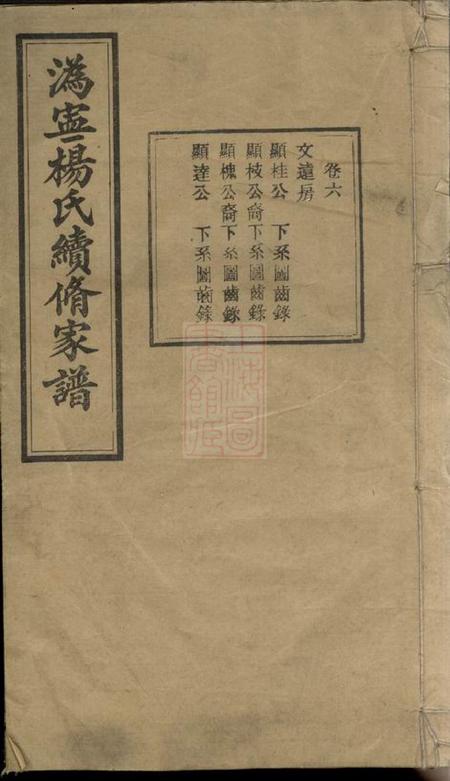 溈寍楊氏續脩家譜
卷六
文遠房
顯桂公 下系圖齒錄
顯枝公裔下系圖齒錄
顯槐公裔下系圖齒錄
顯達公 下系圖齒錄
上海圖書館藏